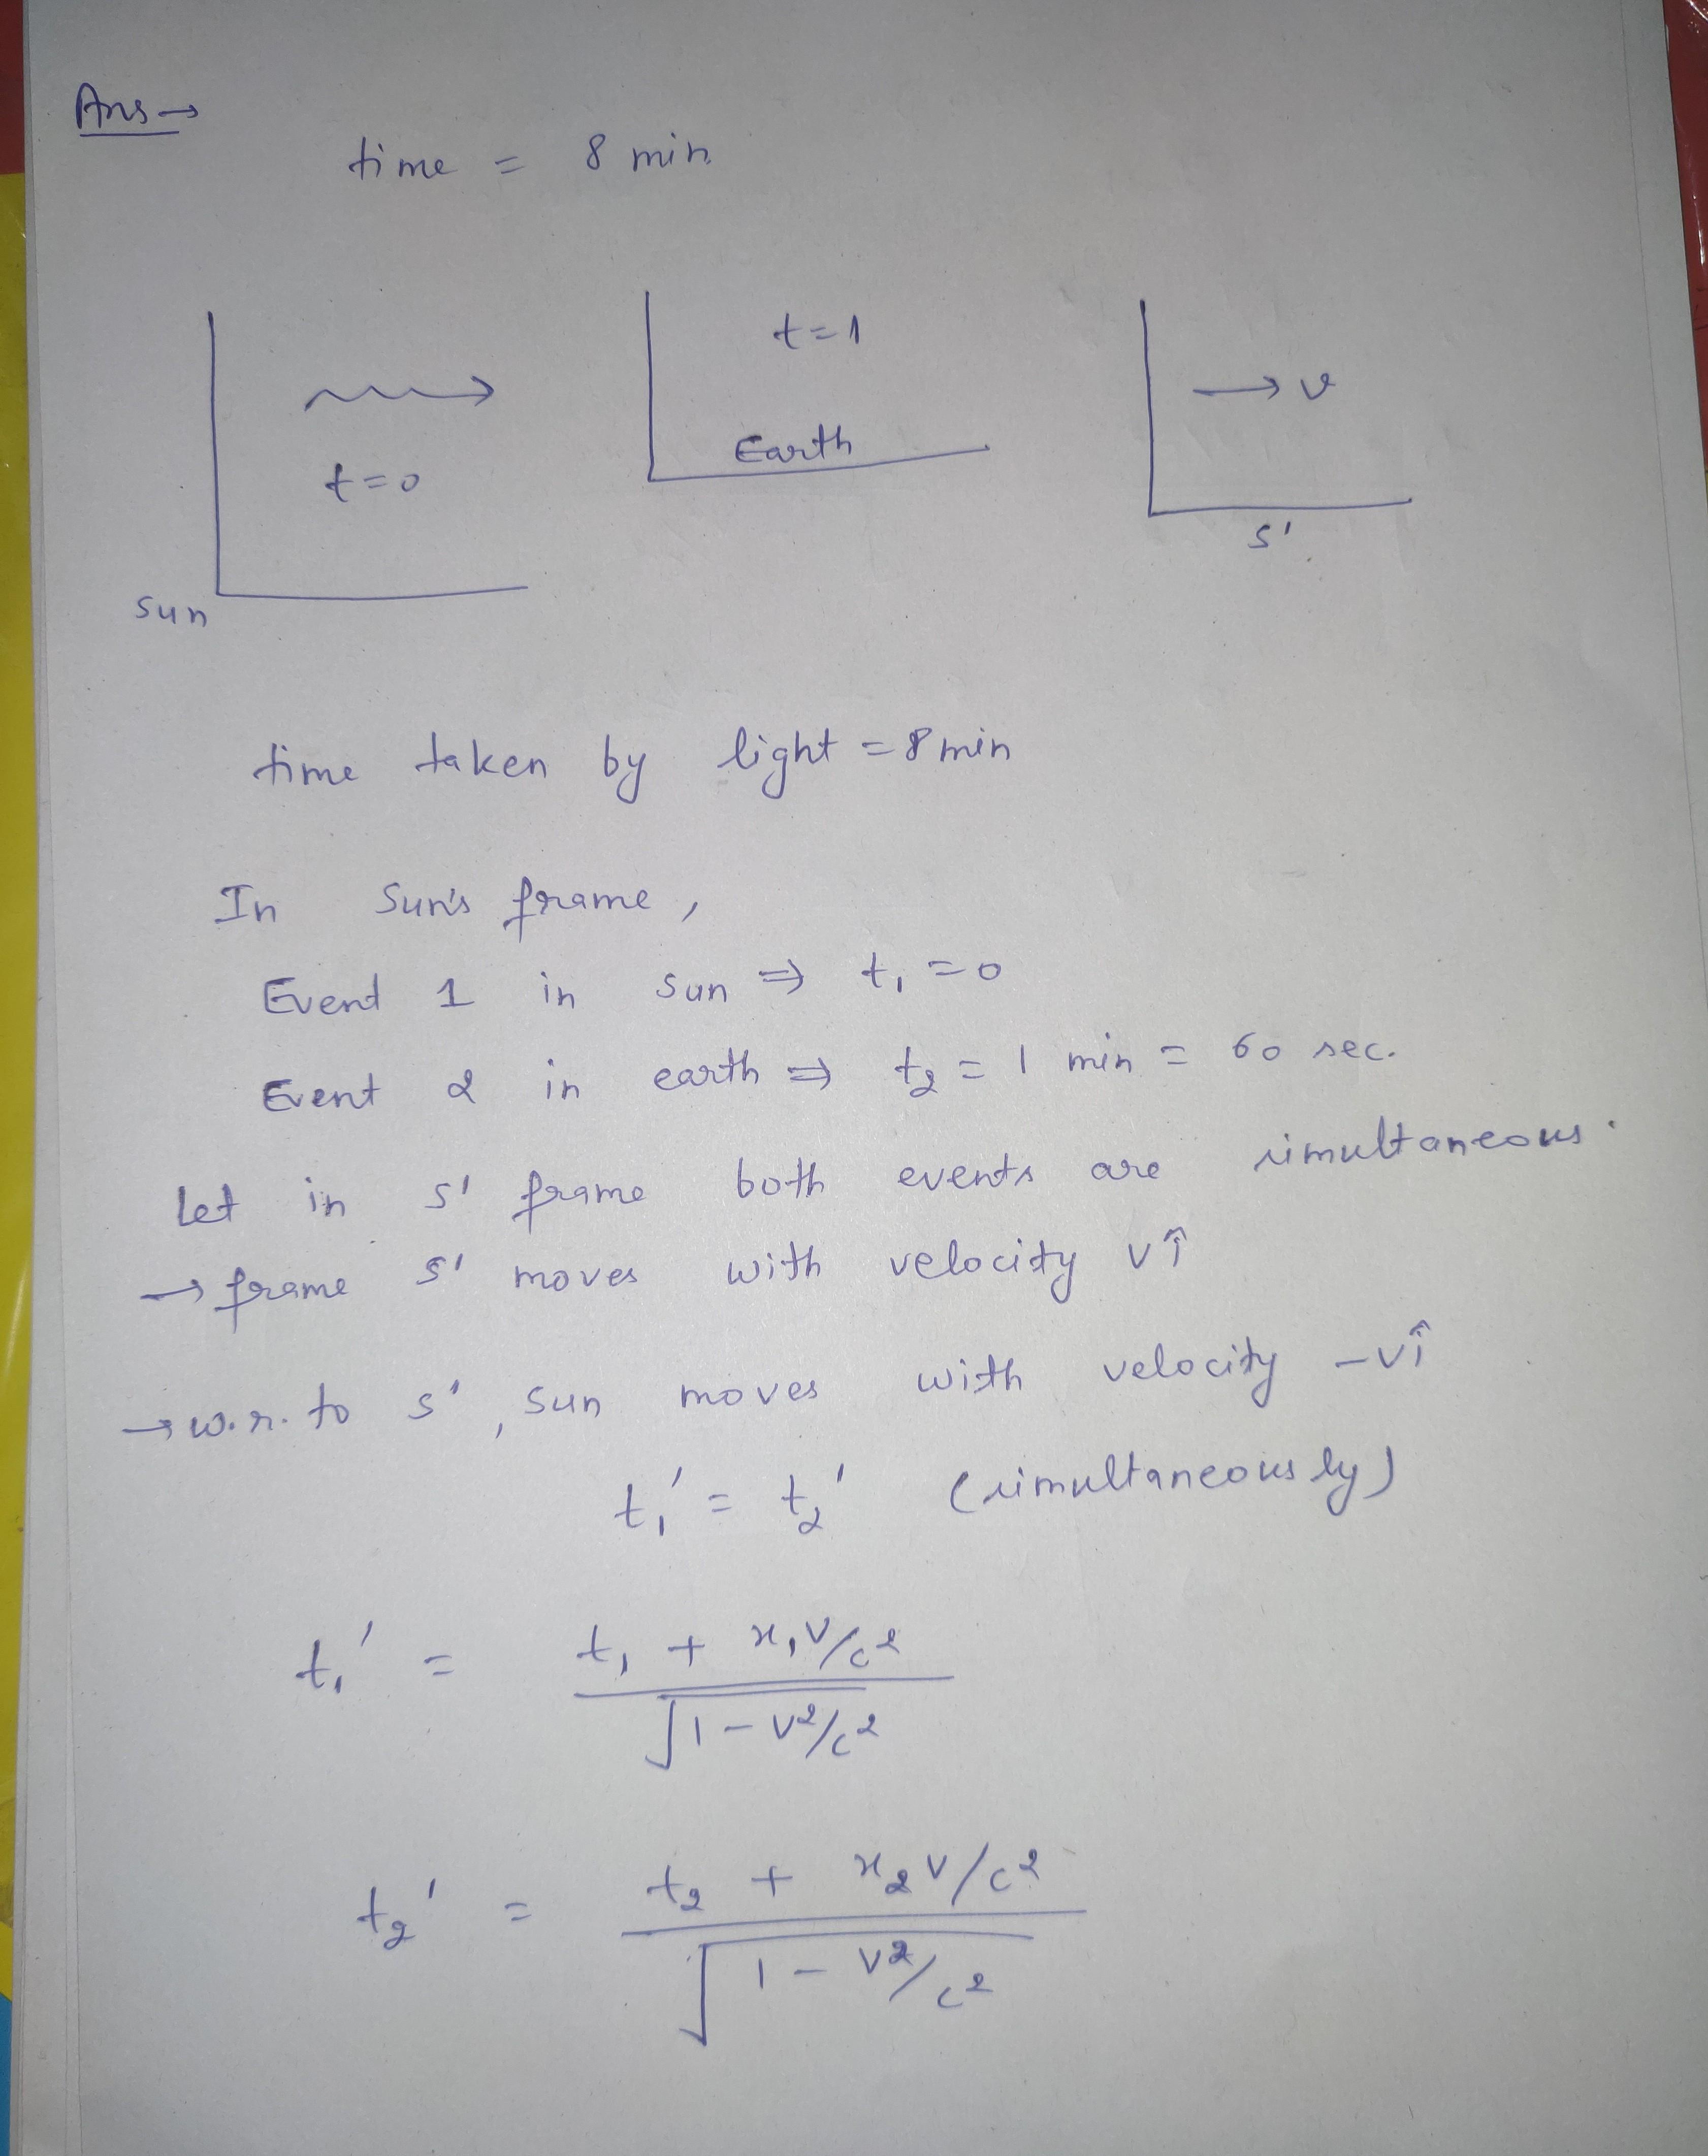 Ans →
time = 8 min
t=1
→ v
t=0
Earth
s'
sun
time taken by light = 8 min
In Sun's frame,
Event 1 in sun ⇒ t₁ = 0
Event 2 in earth ⇒ t₂ = 1 min = 60 sec.
Let in s' frame both events are simultaneous.
→ frame s' moves with velocity vî
→ w.r. to s', sun moves with velocity -vî
t₁' = t₂' (simultaneously)
t₁' = (t₁ + x₁v/c²) / √(1 - v²/c²)
t₂' = (t₂ + x₂v/c²) / √(1 - v²/c²)